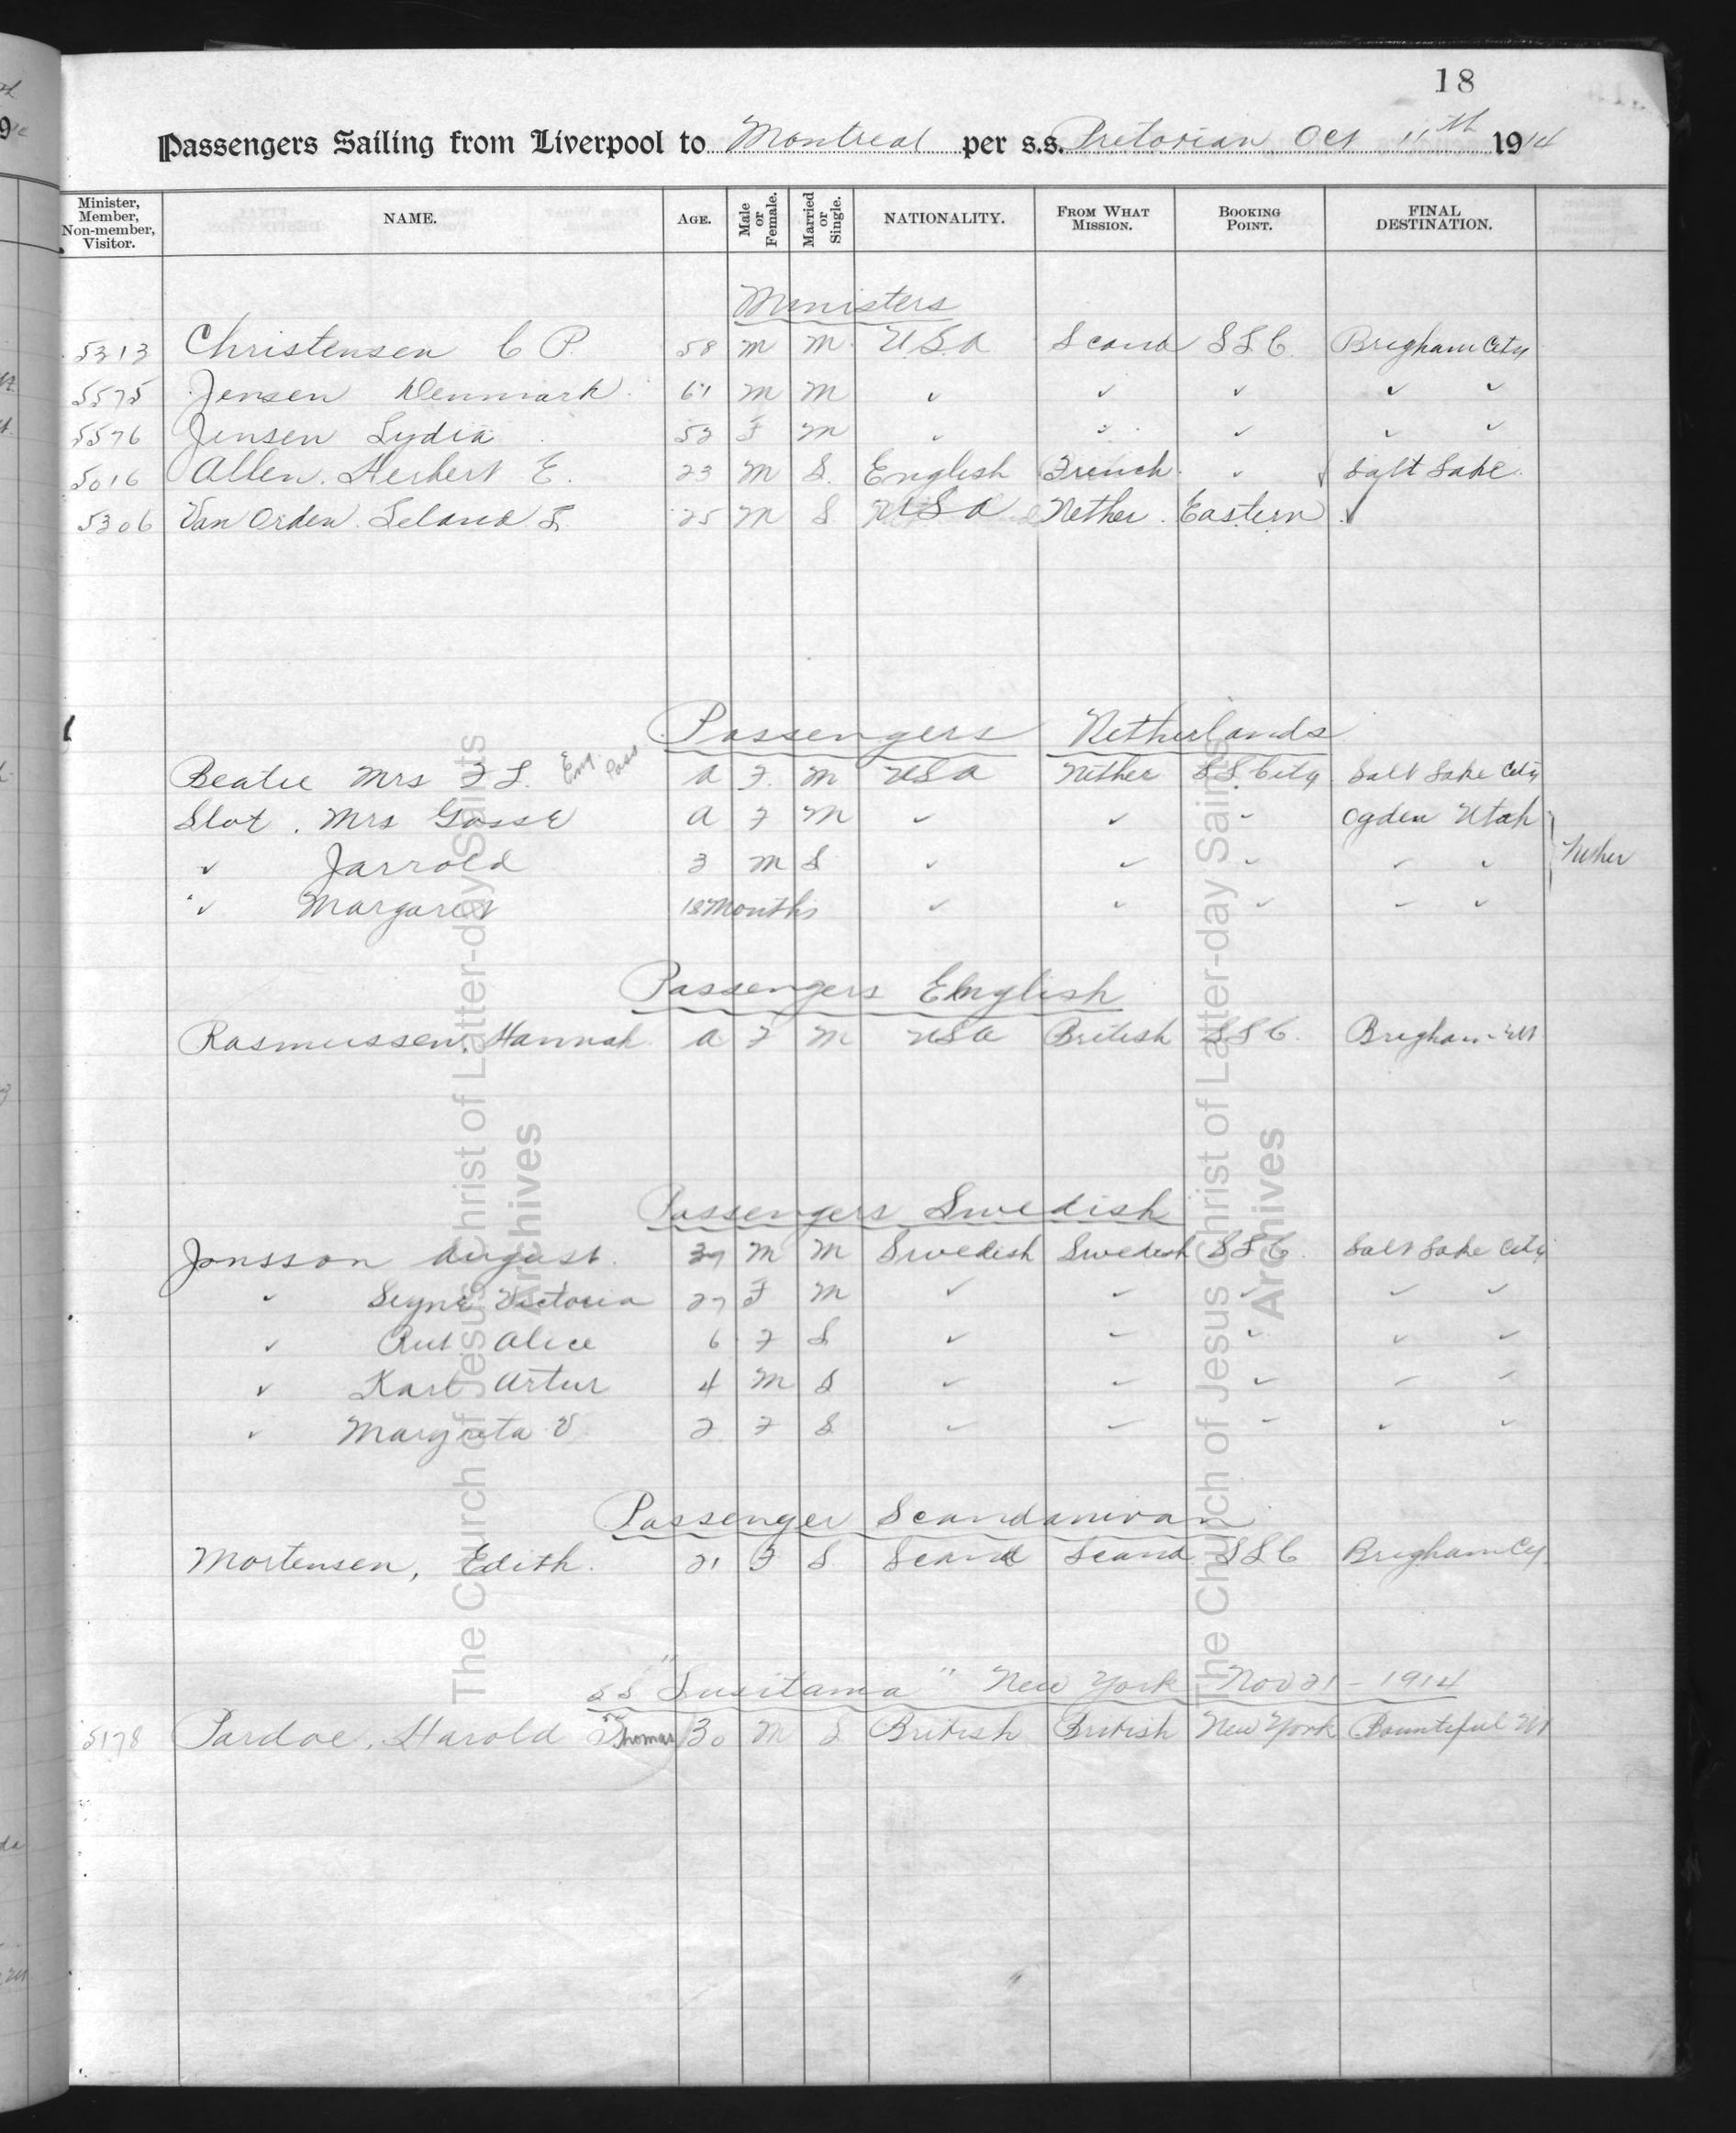 18
Passengers Sailing from Liverpool to Montreal per s.s. Pretorian Oct 11th 1914
Minister, Member, Non-member, Visitor. NAME. AGE. Male or Female. Married or Single. NATIONALITY. FROM WHAT MISSION. BOOKING POINT. FINAL DESTINATION.
Ministers
5313 Christensen C P. 58 M M. U.S.A Scand S L C. Brigham City
5575 Jensen Denmark 61 M M ✓ ✓ ✓ ✓ ✓
5576 Jensen Lydia 52 F M ✓ ✓ ✓ ✓ ✓
5016 Allen. Herbert E. 23 M S. English French ✓ Salt Lake.
5306 Van Orden. Leland 25 M S U S A Nether. Eastern ✓
Passengers Netherlands
Beatie Mrs F L. Eng. Pass A F. M U S A Nether S L City Salt Lake City
Slot. Mrs Gosse A F M ✓ ✓ ✓ Ogden Utah
✓ Jarrold 3 M S ✓ ✓ ✓ ✓ ✓ Nether
✓ Margaret 18 Months ✓ ✓ ✓ ✓ ✓
Passengers English
Rasmussen. Hannah A F M U S A British S L C. Brigham Ut
Passengers Swedish
Jonsson August. 37 M M Swedish Swedish S L C. Salt Lake City
✓ Signe Victoria 27 F M ✓ ✓ ✓ ✓ ✓
✓ Rut Alice 6 F S ✓ ✓ ✓ ✓ ✓
✓ Karl Artur 4 M S ✓ ✓ ✓ ✓ ✓
✓ Margreta V 2 F S ✓ ✓ ✓ ✓ ✓
Passenger Scandanivan
Mortensen, Edith. 21 F S Scand Scand S L C Brigham Cy
S S "Lusitania" New York Nov 21 - 1914
5178 Pardoe, Harold Thomas 30 M S British British New York Bountiful Ut
The Church of Jesus Christ of Latter-day Saints
Archives
The Church of Jesus Christ of Latter-day Saints
Archives